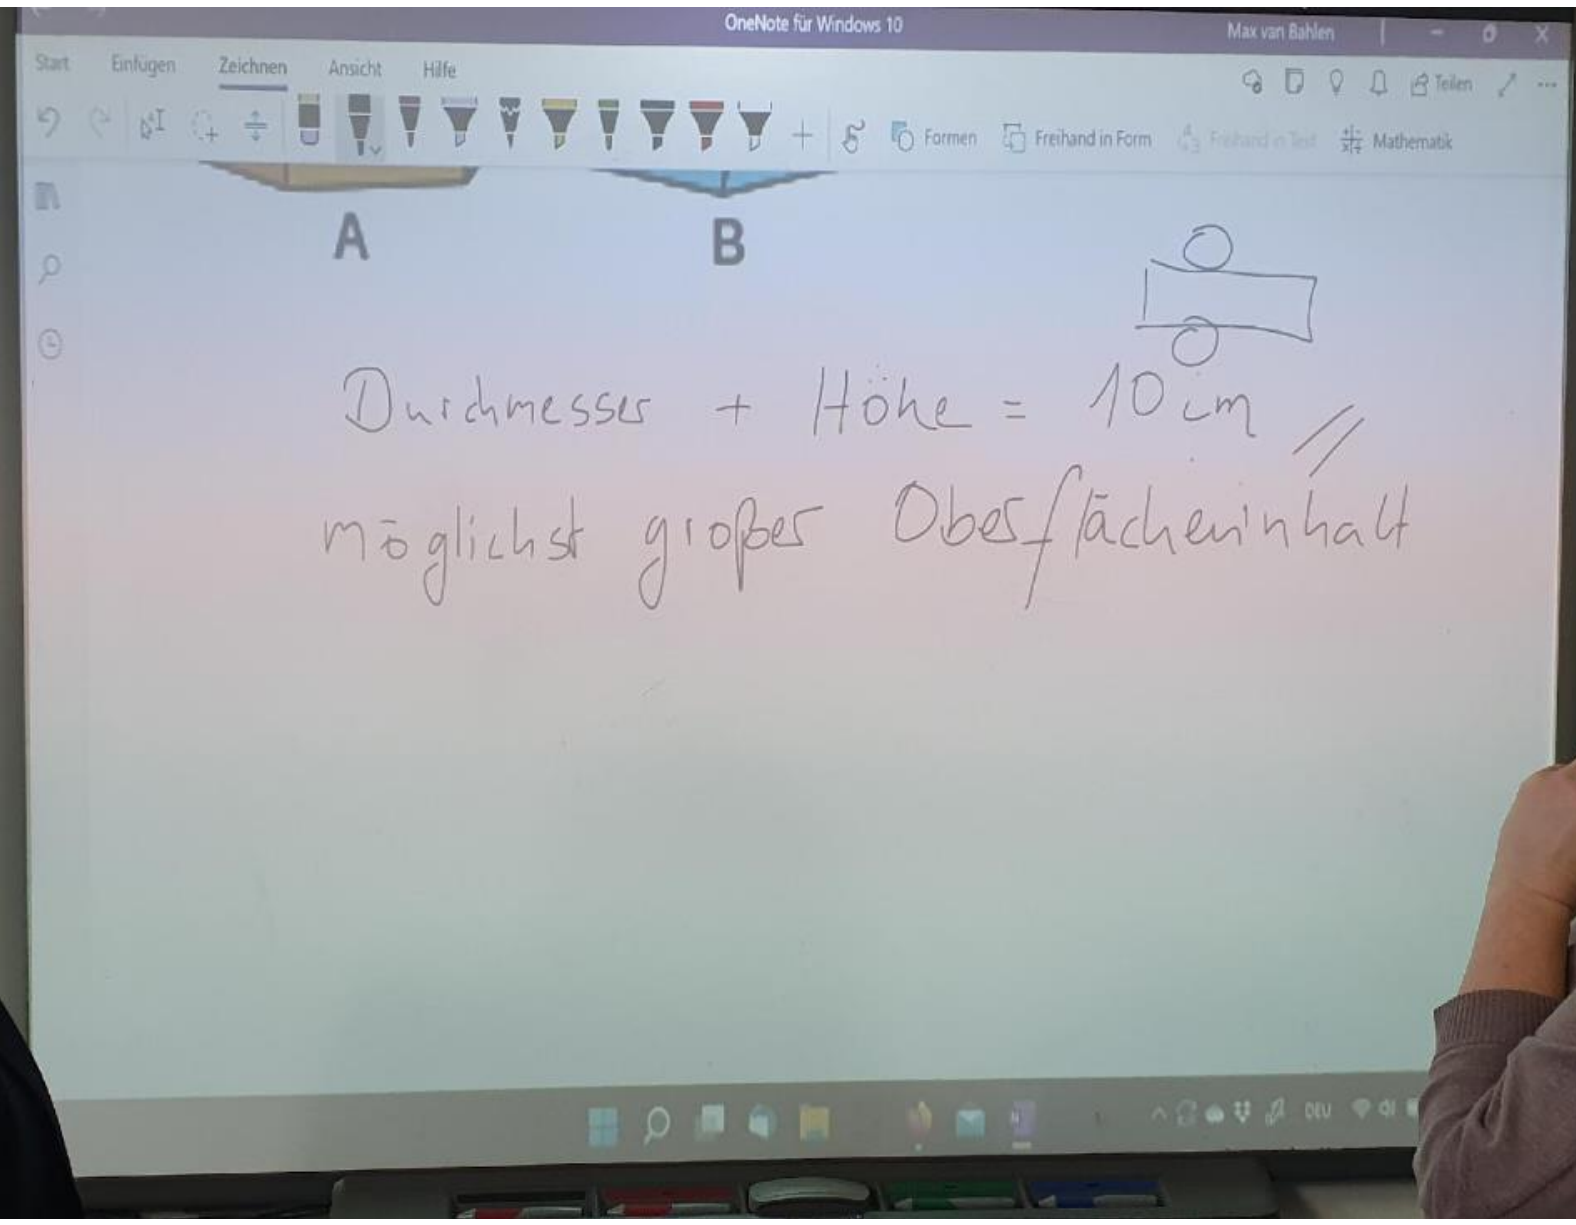 OneNote für Windows 10
Max van Bahlen
Start Einfügen Zeichnen Ansicht Hilfe
Teilen
Formen Freihand in Form Freihand in Text Mathematik
A B
Durchmesser + Höhe = 10 cm
möglichst großer Oberflächeninhalt
DEU